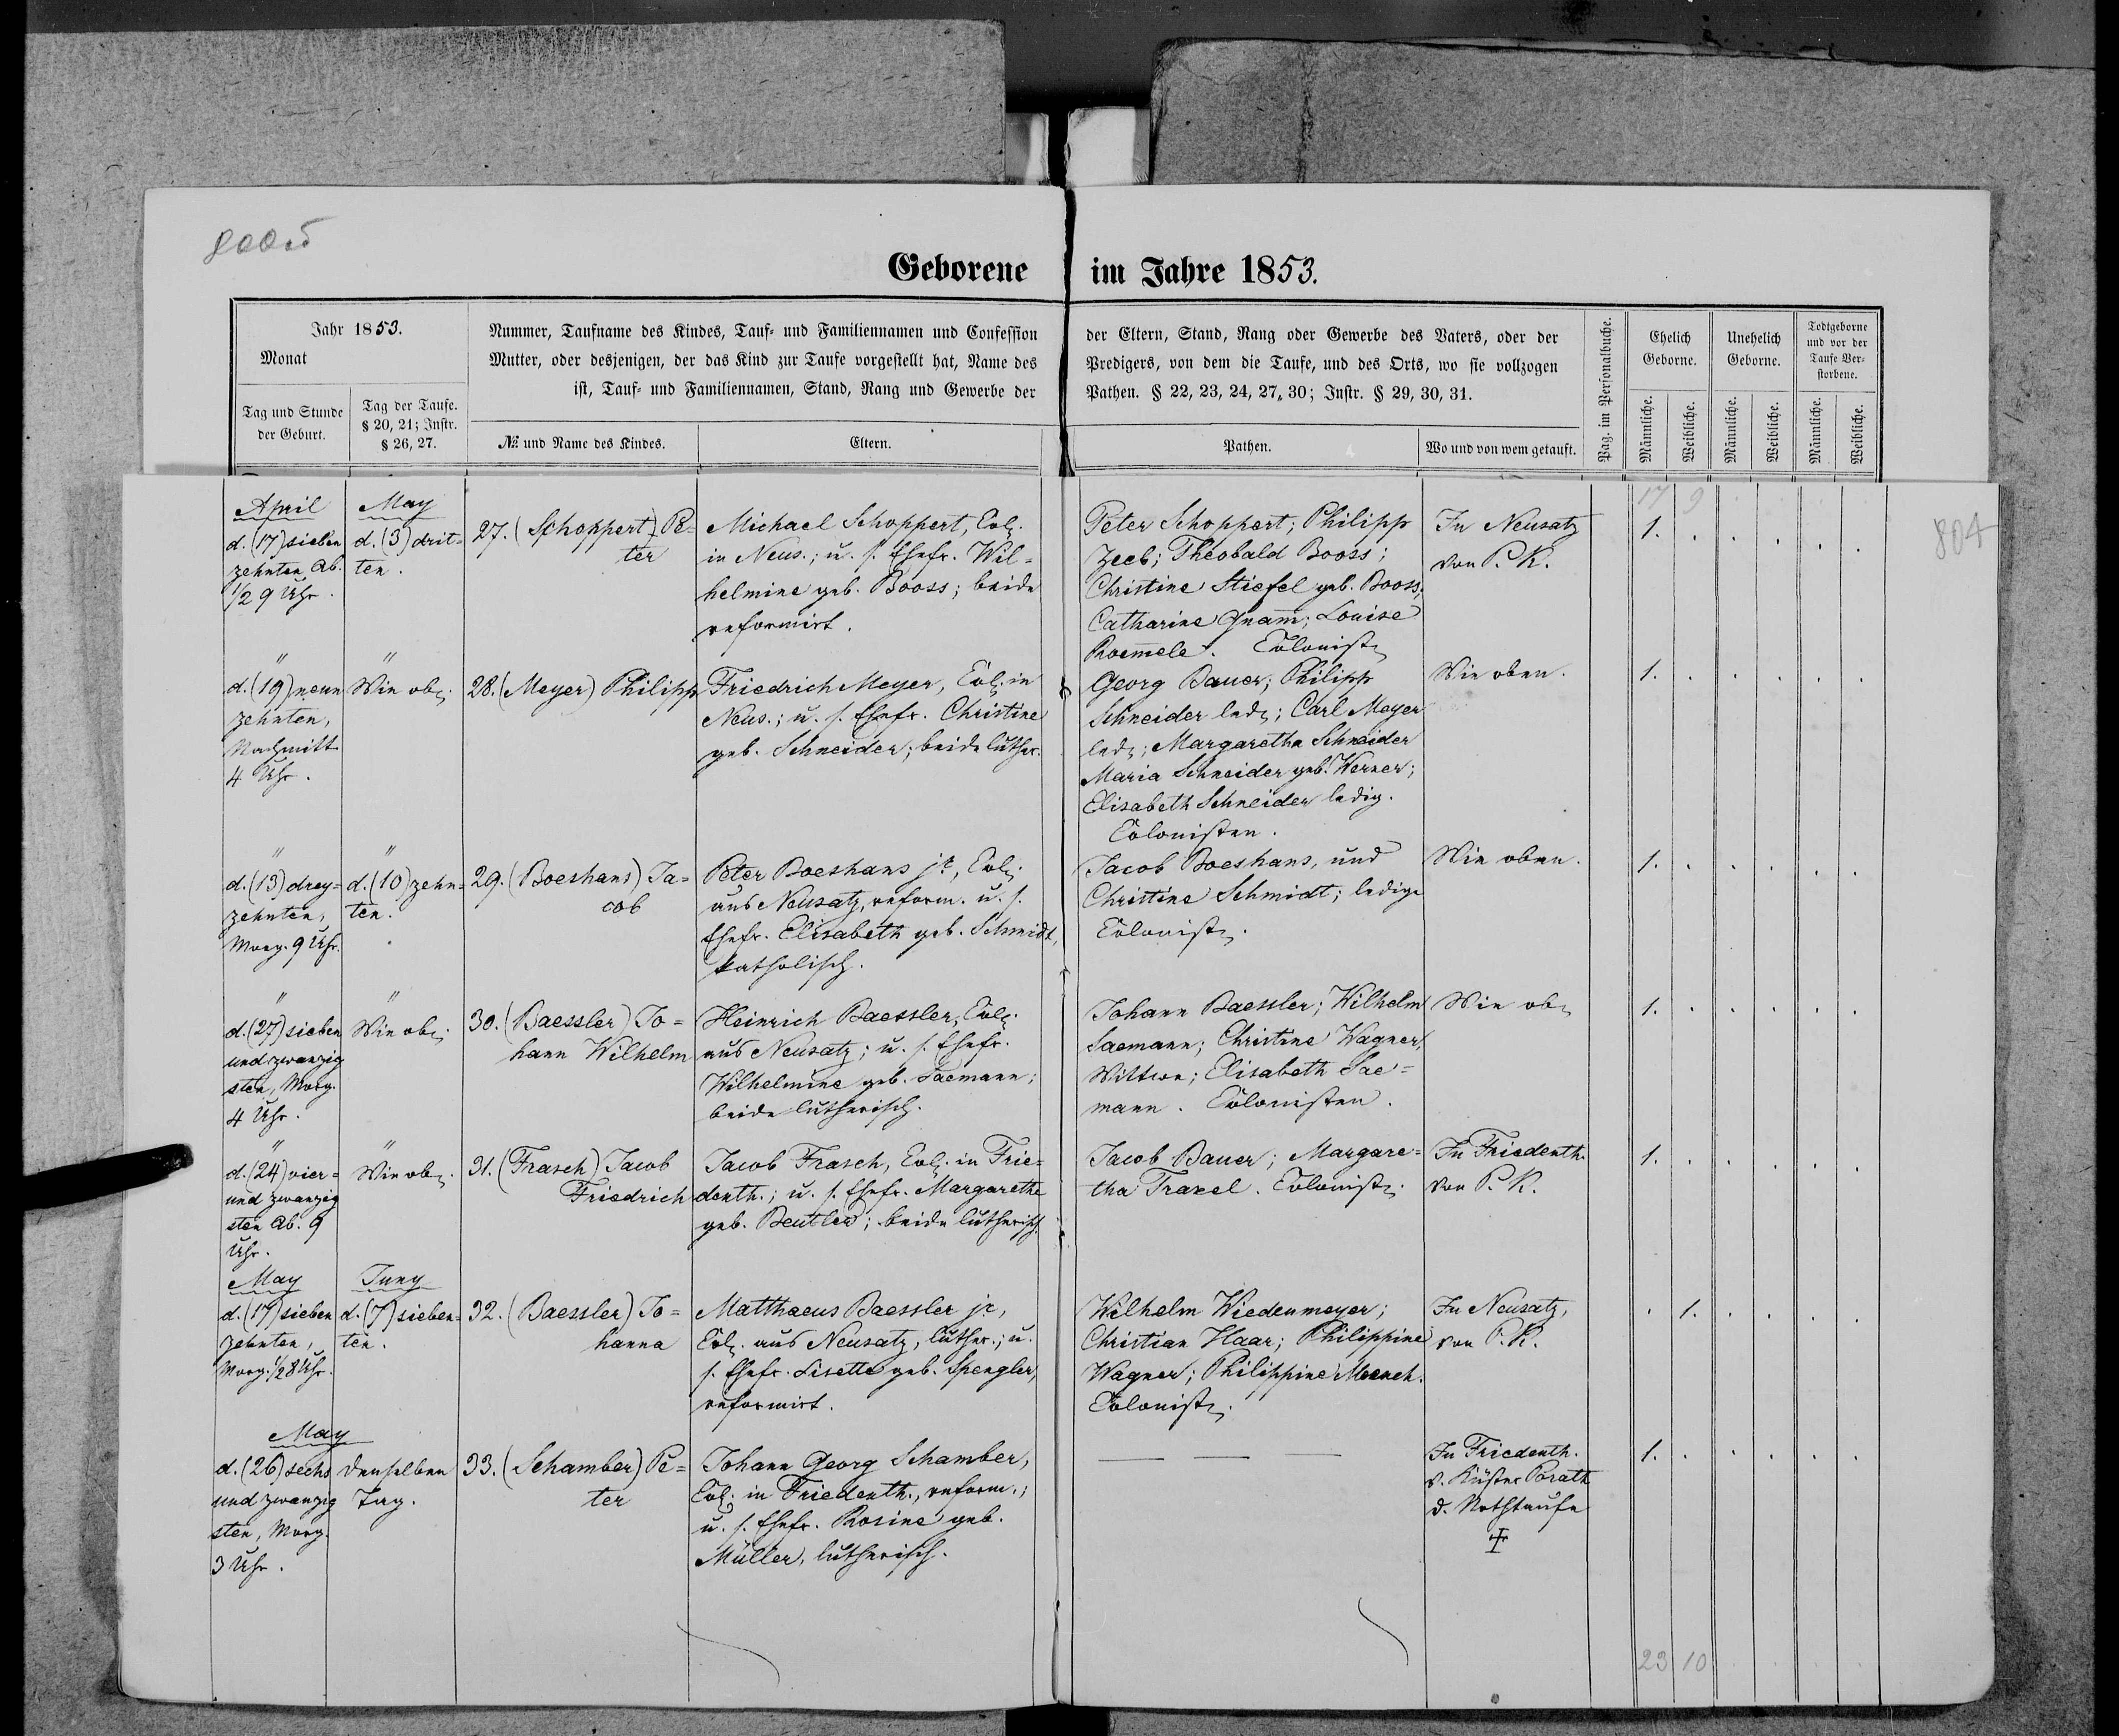 Geborene im Jahre 1853.
Jahr 1853.
Monat
Tag und Stunde
der Geburt.
Tag der Taufe.
§ 20, 21; Instr.
§ 26, 27.
Nummer, Taufname des Kindes, Tauf- und Familiennamen und Confession
Mutter, oder desjenigen, der das Kind zur Taufe vorgestellt hat, Name des
ist, Tauf- und Familiennamen, Stand, Rang und Gewerbe der
№ und Name des Kindes.
Eltern.
der Eltern, Stand, Rang oder Gewerbe des Vaters, oder der
Predigers, von dem die Taufe, und des Orts, wo sie vollzogen
Pathen. § 22, 23, 24, 27, 30; Instr. § 29, 30, 31.
Pathen.
Wo und von wem getauft.
Pag. im Personalbuche.
Ehelich
Geborne.
Unehelich
Geborne.
Todtgeborne
und vor der
Taufe Ver-
storbene.
Männliche.
Weibliche.
Männliche.
Weibliche.
Männliche.
Weibliche.
17 9
804
April
d. (17) sieben
zehnten Ab.
1/2 9 Uhr.
May
d. (3) drit=
ten.
27. (Schoppert) Pe=
ter
Michael Schoppert, Col.
in Neus.; u. s. Ehefr. Wil=
helmine geb. Booss; beide
reformirt.
Peter Schoppert; Philipp
Zeeb; Theobald Booss;
Christine Stiefel geb. Booss,
Catharine Gnam̄; Louise
Roemele. Colonist.
In Neusatz
von P. K.
1.
"
d. (19) neun
zehnten,
Nachmitt
4 Uhr.
"
Wie ob.
28. (Meyer) Philipp
Friedrich Meyer, Col. in
Neus.; u. s. Ehefr. Christine
geb. Schneider; beide luther.
Georg Bauer; Philipp
Schneider led.; Carl Meyer
led.; Margaretha Schneider
Maria Schneider geb. Werner;
Elisabeth Schneider ledig.
Colonisten.
Wie oben.
1.
"
d. (13) drey=
zehnten,
Morg. 9 Uhr.
"
d. (10) zehn=
ten.
29. (Boeshans) Ja=
cob
Peter Boeshans jr, Col.
aus Neusatz, reform. u. s.
Ehefr. Elisabeth geb. Schmidt,
katholisch.
Jacob Boeshans, und
Christine Schmidt; ledige
Colonist.
Wie oben.
1.
"
d. (27) sieben
und zwanzig
sten, Morg.
4 Uhr.
"
Wie ob.
30. (Baessler) Jo=
hann Wilhelm
Heinrich Baessler, Col.
aus Neusatz; u. s. Ehefr.
Wilhelmine geb. Saemann;
beide lutherisch.
Johann Baessler; Wilhelm
Saemann; Christine Wagner,
Wittwe; Elisabeth Sae=
mann. Colonisten.
Wie ob.
1.
"
d. (24) vier=
und zwanzig
sten Ab. 9
Uhr.
"
Wie ob.
31. (Frasch) Jacob
Friedrich
Jacob Frasch, Col. in Frie=
denth.; u. s. Ehefr. Margarethe
geb. Beutler; beide lutherisch.
Jacob Bauer; Margare=
tha Traxel. Colonist.
In Friedenth.
von P. K.
1.
May
d. (17) sieben
zehnten,
Morg. 1/2 8 Uhr.
Juny
d. (7) sieben=
ten.
32. (Baessler) Jo=
hanna
Matthaeus Baessler jr,
Col. aus Neusatz, luther.; u.
s. Ehefr. Lisette geb. Spengler,
reformirt.
Wilhelm Wiedenmeyer;
Christian Haar; Philippine
Wagner; Philippine
Colonist.
In Neusatz,
von P. K.
1.
May
d. (26) sechs
und zwanzig
sten, Morg.
3 Uhr.
denselben
Tag.
33. (Schamber) Pe=
ter
Johann Georg Schamber,
Col. in Friedenth., reform.;
u. s. Ehefr. Rosine geb.
Müller, lutherisch.
In Friedenth.
v. Küster Porath
d. Nothtaufe
1.
23 10